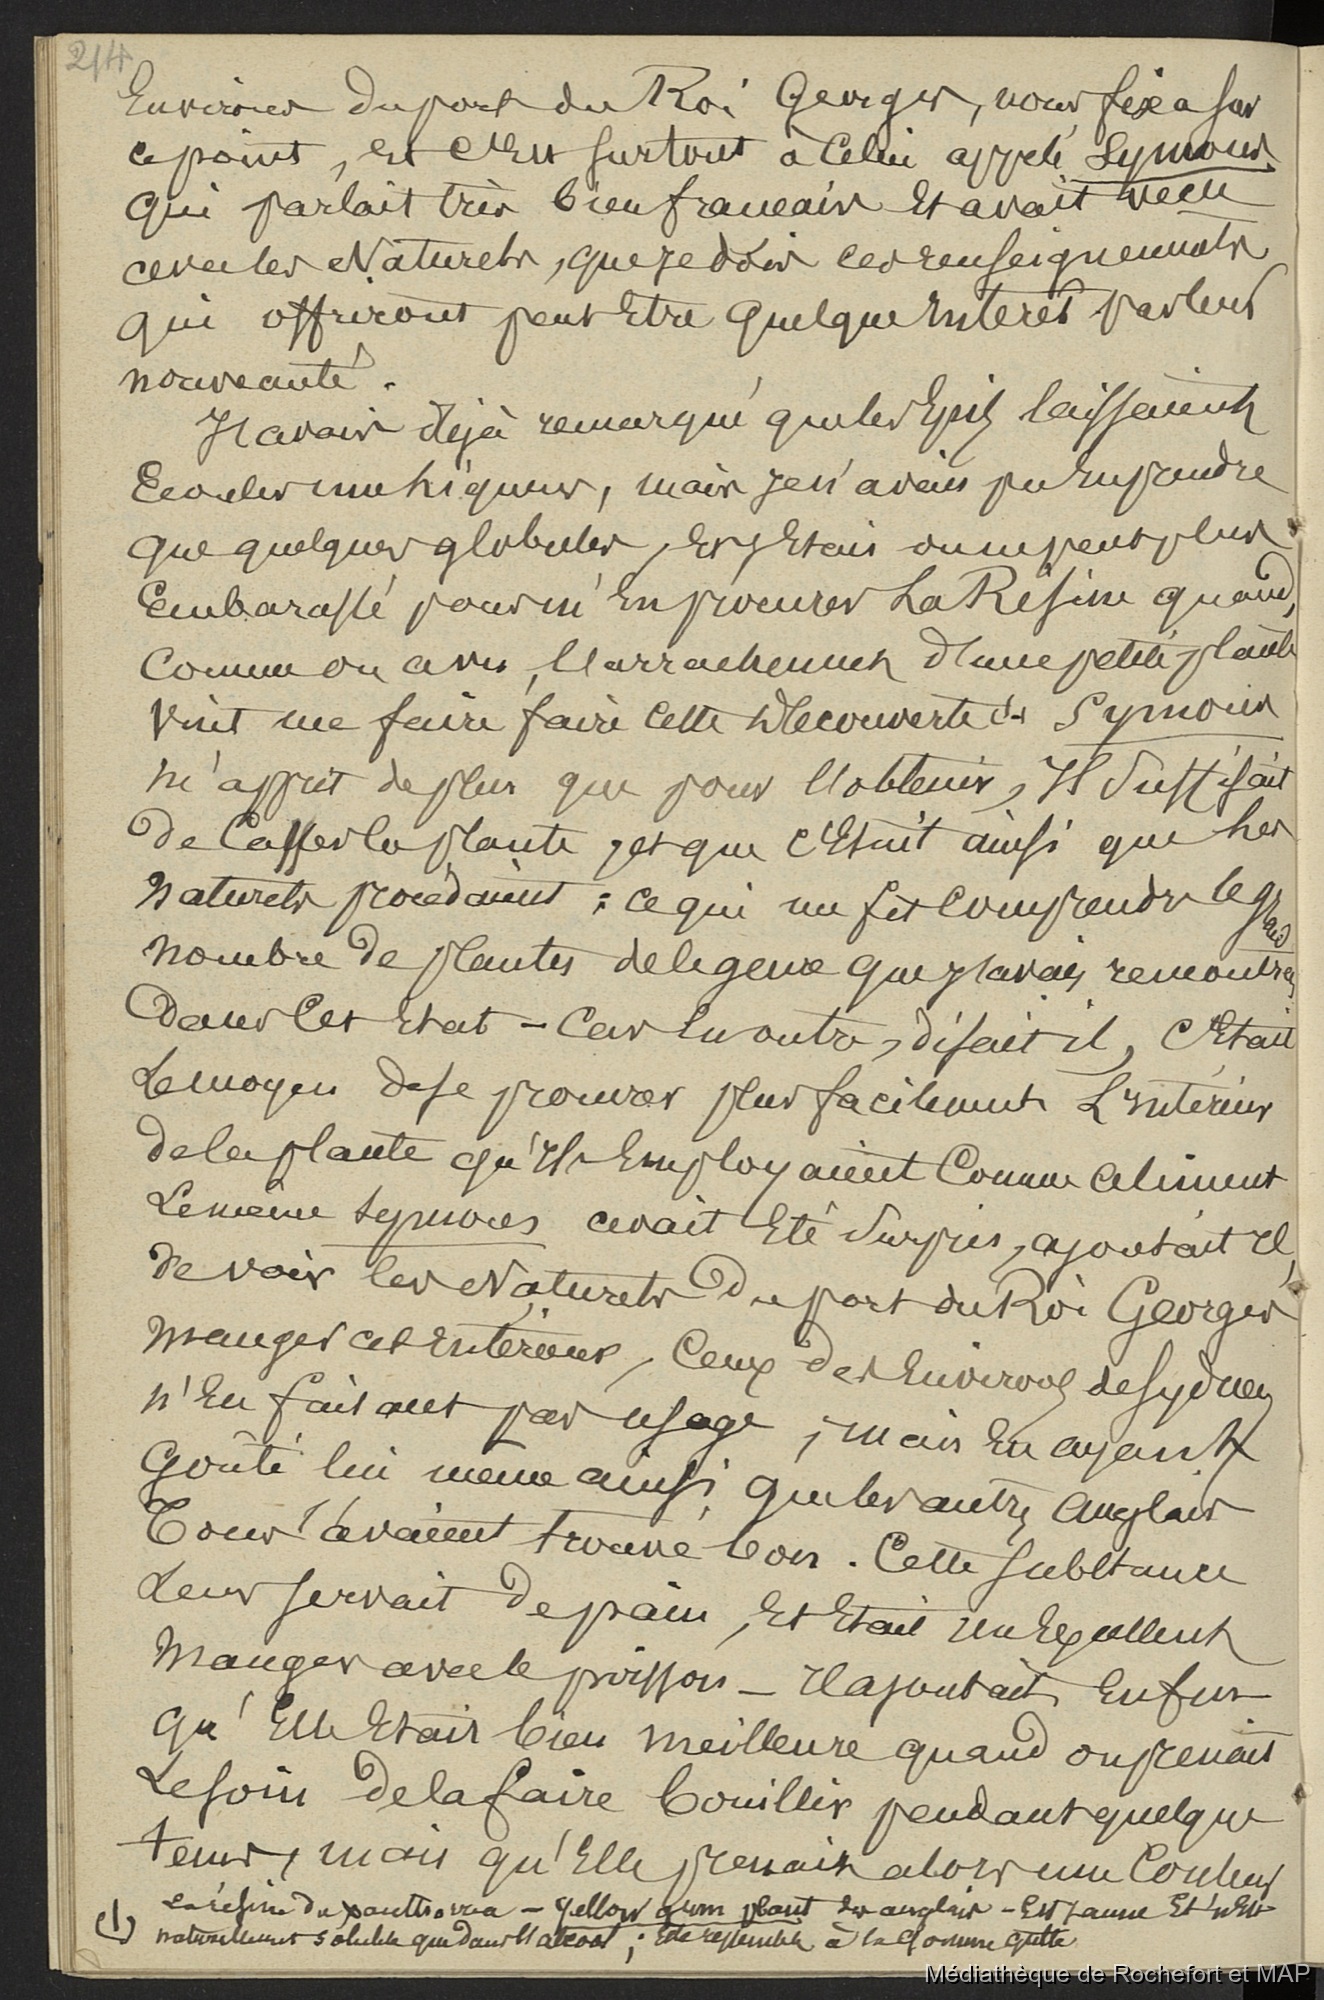 214
Environs du port du Roi Georges, nous fixa sur
ce point, et c'est surtout à celui appelé Symours
qui parlait très bien francais et avait vecu
avec les Naturels, que je dois ces renseignements
qui offriront peut etre quelque interet par leur
nouveauté.
J'avais déjà remarqué que les Epis laissaient
Ecouler une liqueur, mais je n'avais pu en prendre
que quelques globules, et j'etais on ne peut plus
Embarassé pour m'en procurer la Résine quand,
comme on a vu, l'arrachement d'une petite plante
vint me faire faire cette decouverte et Symours
m'apprit de plus que pour l'obtenir, Il suffisait
de casser la plante, et que c'etait ainsi que les
naturels procédaient : ce qui me fit comprendre le grand
nombre de plantes de le genre que j'avais rencontrées
dans cet etat - Car en outre, disait il, c'etait
Le moyen de se procurer plus facilement L'interieur
de la plante qu'ils employaient comme aliment
Le même Symours avait été surpris, ajoutait il,
de voir les Naturels du port du Roi Georges
manger cet interieur, ceux des environs de Sydney
n'en faisant pas usage, mais en ayant
goûté lui même ainsi que les autres anglais
Tous l'avaient trouvé bon. Cette substance
Leur servait de pain, et etait un excellent
manger avec le poisson - Il ajoutait enfin
qu'Elle etait bien meilleure quand on prenait
Le soin de la faire bouillir pendant quelque
tems, mais qu'Elle prenait alors une couleur
(1) La résine du xanthorrea - yellow gum plant des anglais - Est jaune Et n'Est
naturellement soluble que dans l'alcool ; Elle ressemble à la Gomme gutte
Médiathèque de Rochefort et MAP